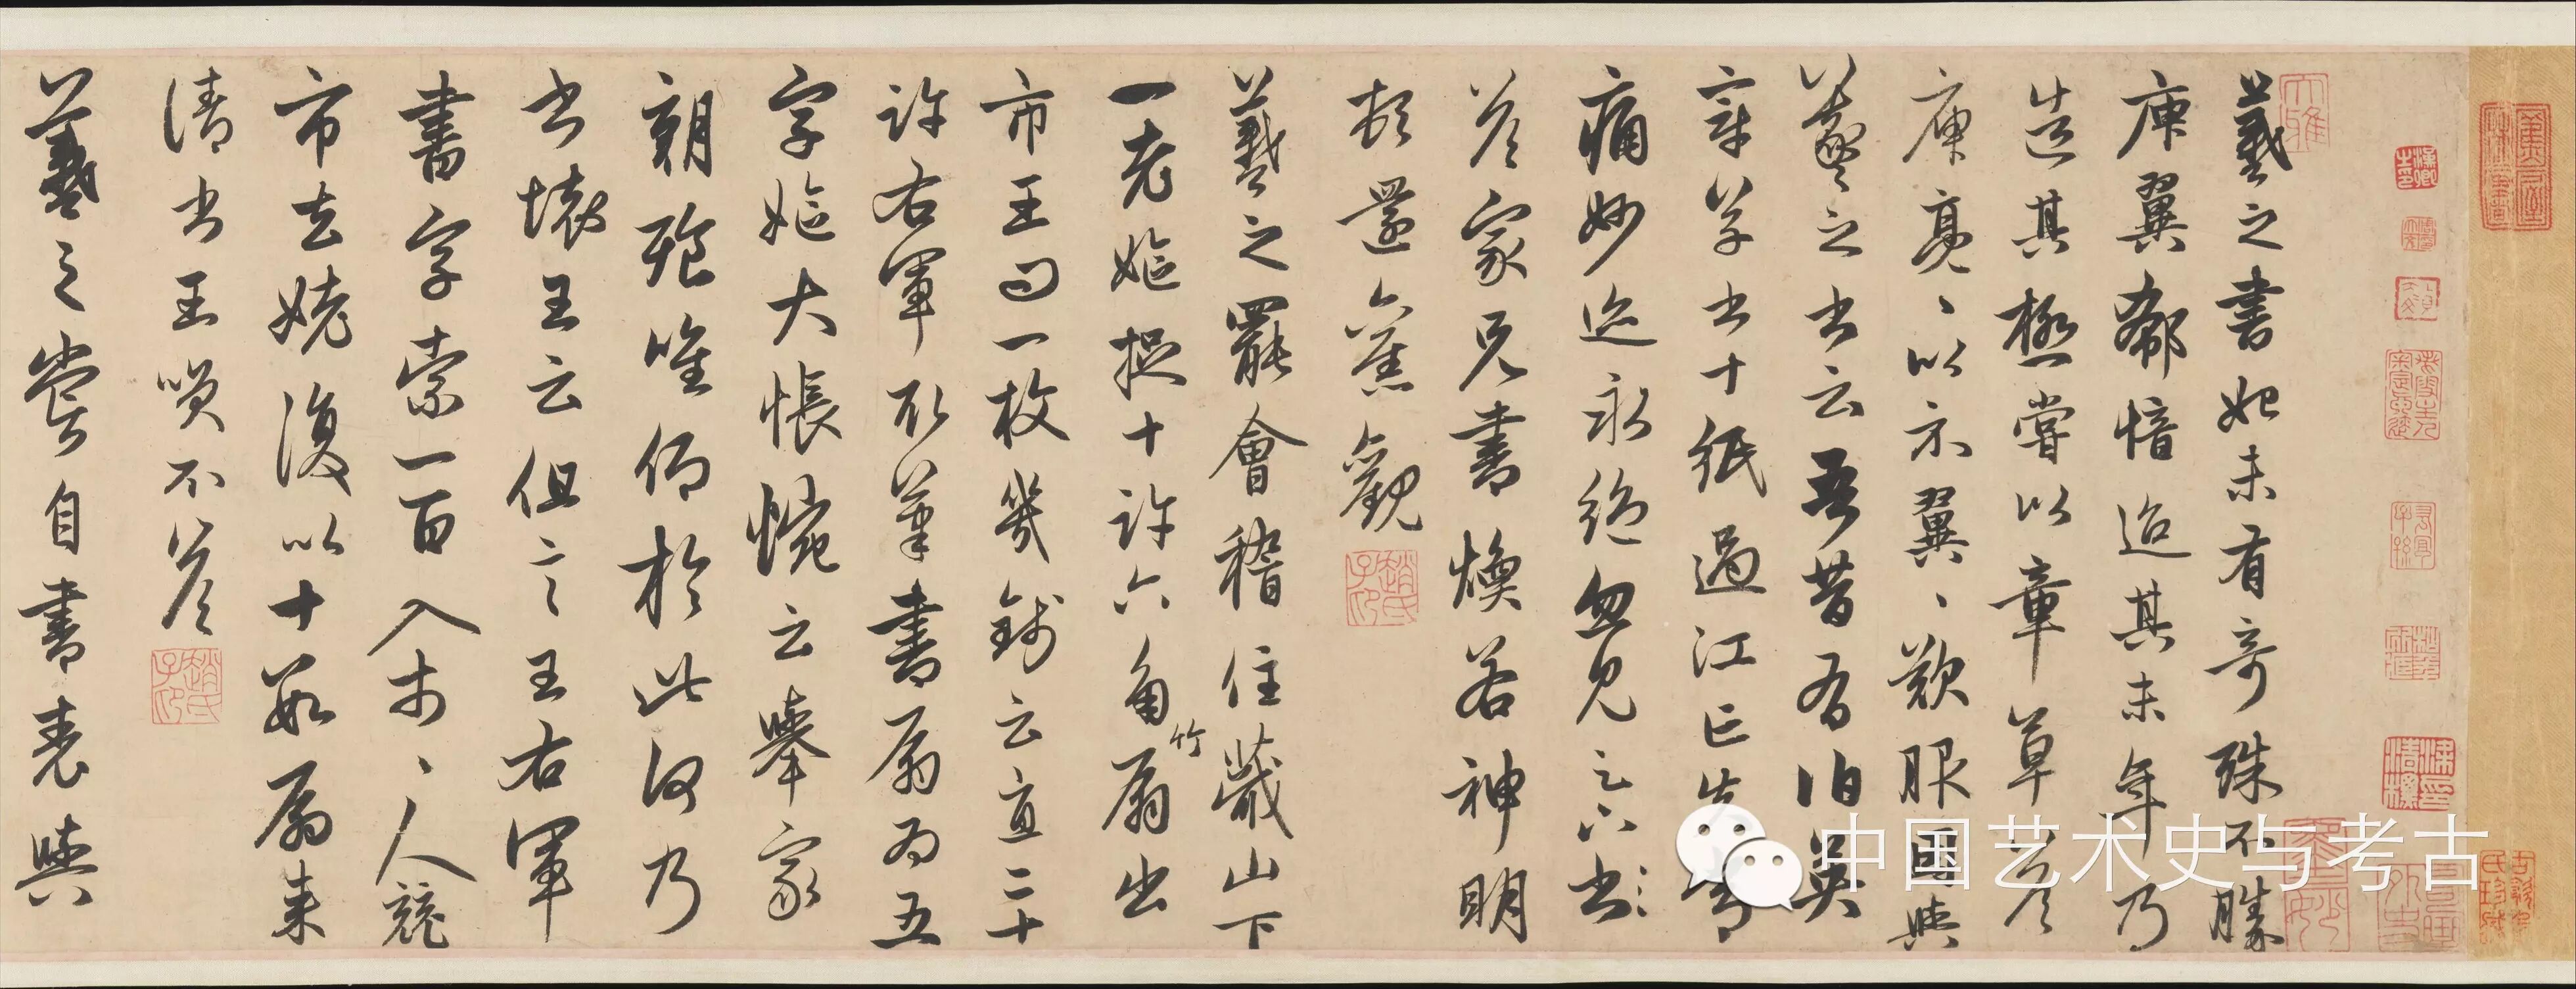 羲之書始未有奇殊不勝
庾翼郗愔迨其末年乃
造其極嘗以章草答
庾亮、以示翼、歎服因與
羲之書云吾昔有伯英
章草書十紙過江亡失常
痛妙迹永絕忽見足下書
答家兄書煥若神明
頓還舊觀
趙氏子昂
羲之罷會稽住蕺山下
一老嫗捉十許六角竹扇出
市王問一枚幾錢云直二十
許右軍取筆書扇為五
字嫗大悵惋云舉家
朝飱唯仰於此何乃
書壞王云但言王右軍
書字索一百入市、人競
市去姥復以十數扇來
請書王笑不答
趙氏子昂
羲之嘗自書表與
大雅
中国艺术史与考古